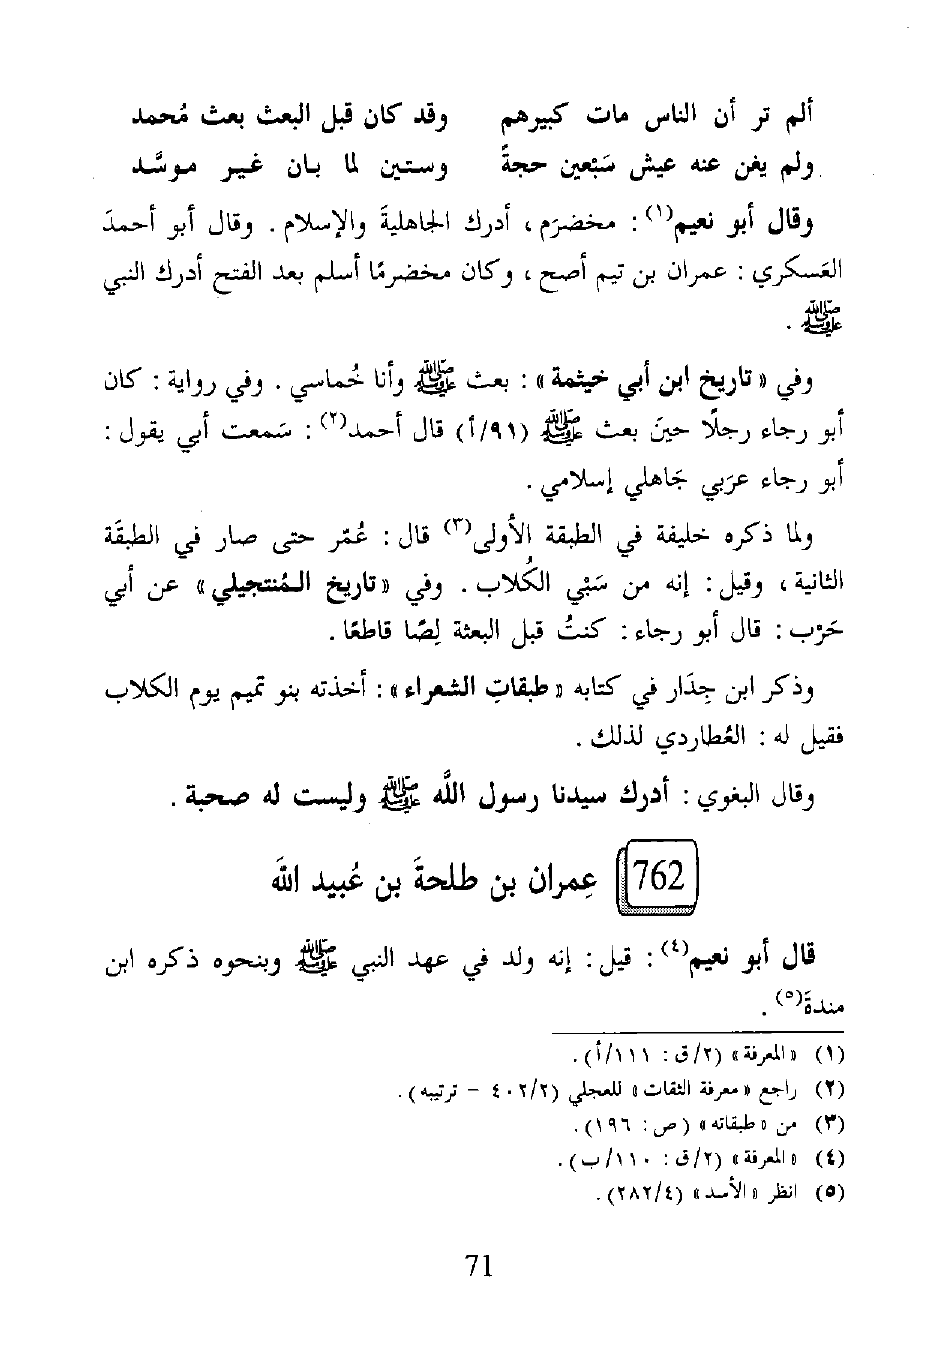 ألم تر أن الناس مات كبيرهم وقد كان قبل البعث بعث مُحمد
ولم يغن عنه عيش سَبْعين حجةً وستين لما بان غير موسَّد
وقال أبو نعيم(١) : مخضرَم ، أدرك الجاهليةَ والإسلام . وقال أبو أحمدَ
العَسكري : عمران بن تيم أصح ، وكان مخضرمًا أسلم بعد الفتح أدرك النبي
ﷺ .
وفي « تاريخ ابن أبي خيثمة » : بعث ﷺ وأنا خُماسي . وفي رواية : كان
أبو رجاء رجلًا حينَ بعث ﷺ (٩١/أ) قال أحمد(٢) : سَمعت أبي يقول :
أبو رجاء عرَبي جَاهلي إسلامي .
ولما ذكره خليفة في الطبقة الأولى(٣) قال : عُمّر حتى صار في الطبقَة
الثانية ، وقيل : إنه من سَبْي الكُلاب . وفي « تاريخ المُنتجيلي » عن أبي
حَرْب : قال أبو رجاء : كنتُ قبل البعثة لِصًا قاطعًا .
وذكر ابن جِدَار في كتابه « طبقاتِ الشعراء » : أخذته بنو تميم يوم الكلاب
فقيل له : العُطاردي لذلك .
وقال البغوي : أدرك سيدنا رسول اللَّه ﷺ وليست له صحبة .
762 عِمران بن طلحةَ بن عُبيد اللَه
قال أبو نعيم(٤) : قيل : إنه ولد في عهد النبي ﷺ وبنحوه ذكره ابن
مندةَ(٥) .
(١) « المعرفة » (٢/ق : ١١١/أ) .
(٢) راجع « معرفة الثقات » للعجلي (٤٠٢/٢ – ترتيبه) .
(٣) من « طبقاته » (ص : ١٩٦) .
(٤) « المعرفة » (٢/ق : ١١٠/ب) .
(٥) انظر « الأسد » (٢٨٢/٤) .
71